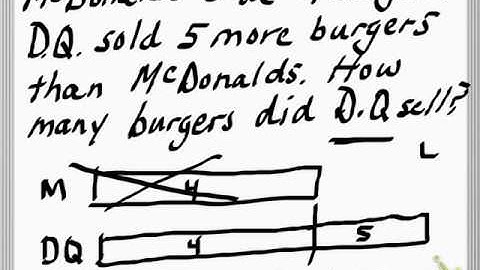 D.Q. sold 5 more burgers
than McDonalds. How
many burgers did D.Q sell?
L
M 4
DQ 4 5